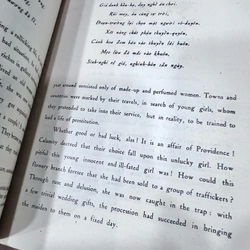 Giả danh hầu hạ, dạy nghề ăn chơi.
Rủi may, âu cũng sự trời,
Đoạn-trường lại chọn mặt người vô-duyên.
Xót nàng chút phận thuyền-quyên,
Cành hoa đem bán vào thuyền lái buôn.
Mẹo lừa đã mắc vào khuôn,
Sính-nghi rẻ giá, nghinh-hôn sẵn ngày.
year around consisted only of made-up and perfumed women. Towns and
countries were marked by their travels, in search of young girls, whom
they pretended to take into their service, but in reality, to be trained to
a life of prostitution.
Whether good or bad luck, alas! It is an affair of Providence!
Calamity decreed that their choice fall upon this unlucky girl. How
pitiful this young innocent and ill-fated girl was! How could this
flowery branch foresee that she had been sold to a group of traffickers?
Through ruse and delusion, she was now caught in the trap: with
a few trivial wedding gifts, the procession had succeeded in bringing
the maiden to them on a fixed day.